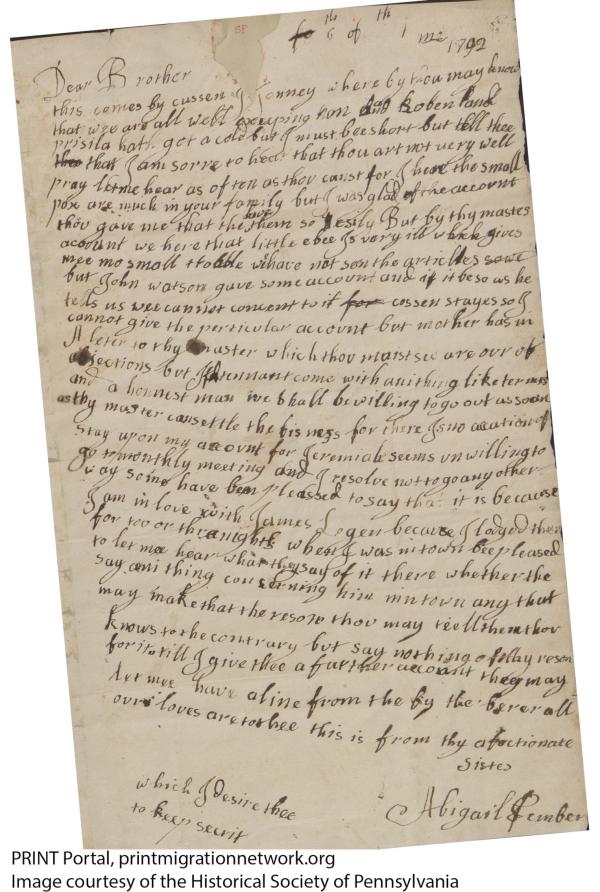 SP
th th
fo 6 of 1 mo 1702
Dear Brother
this comes by cussen J Jenney where by thou may know
that wee are all well excepting ton and Roben and
prisila hath got a cold but J must bee short but tell thee
that J am sorre to hear that thou art not very well
pray let me hear as of ten as thou canst for J hear the small
pox are much in your family but J was glad of the account
thou gave me that the have them so Jesily But by thy mastes
account we here that little ebee Js very ill which gives
mee mo small troble wehave not son the articles sowe
but John watson gave some account and if it beso as he
tells us wee cannot concent to it for cossen stayes so J
cannot give the perticular account but mother has in
A leter to thy master which thou maist see are our ob
abjections but Jf tennant come with anithing like termes
and a honnest man we shall be willing to go out as soon
as thy master can settle the bisness for there Js no acation of
stay upon my account for Jeremiah seems vn willing to
go to monthly meeting and J resolve not to go any other
way some have been pleassed to say that it is because
J am in love with James Logen because J lodged there
for too or thre nights when J was in town bee pleased
to let mee hear what they say of it there whether the
say ani thing conserning him in town any that
may make that the reson thou may tell them thou
knows to the contrary but say nothing of thy reson
for it till J give thee a further account they may
Let mee have a line from the by the berer all
our loves are to thee this is from thy afectionate
Sister
which J desire thee
to keep secrit
Abigail Pember
PRINT Portal, printmigrationnetwork.org
Image courtesy of the Historical Society of Pennsylvania